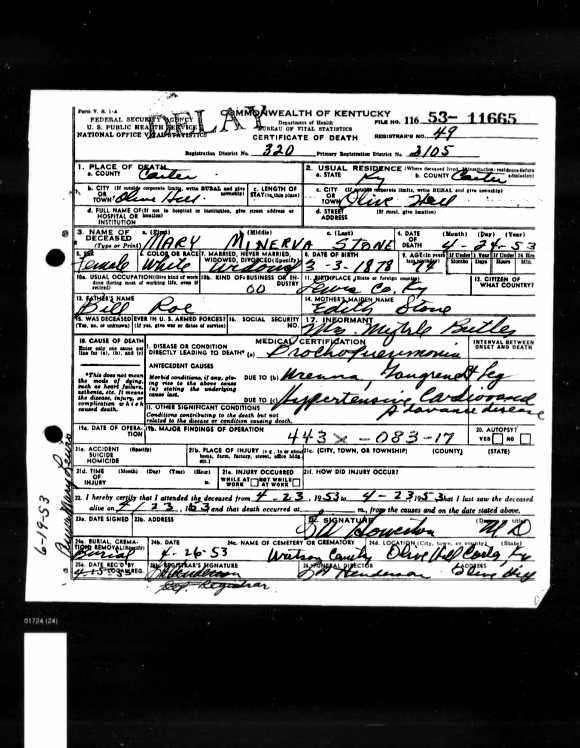 Form V. S. 1-A
FEDERAL SECURITY AGENCY
U. S. PUBLIC HEALTH SERVICE
NATIONAL OFFICE VITAL STATISTICS
DELAY
COMMONWEALTH OF KENTUCKY
Department of Health
BUREAU OF VITAL STATISTICS
CERTIFICATE OF DEATH
FILE NO. 116 53- 11665
REGISTRAR'S NO. 49
Registration District No. 320 Primary Registration District No. 2105
1. PLACE OF DEATH
a. COUNTY Carter
2. USUAL RESIDENCE (Where deceased lived. If institution: residence before admission)
a. STATE Ky b. COUNTY Carter
b. CITY (If outside corporate limits, write RURAL and give township)
OR TOWN Olive Hill
c. LENGTH OF STAY (in this place)
c. CITY (If outside corporate limits, write RURAL and give township)
OR TOWN Olive Hill
d. FULL NAME OF (If not in hospital or institution, give street address or location)
HOSPITAL OR INSTITUTION
d. STREET ADDRESS (If rural, give location)
3. NAME OF DECEASED (Type or Print)
a. (First) MARY b. (Middle) MINERVA c. (Last) STONE
4. DATE OF DEATH (Month) (Day) (Year) 4-24-53
5. SEX Female
6. COLOR OR RACE White
7. MARRIED, NEVER MARRIED, WIDOWED, DIVORCED (Specify) Widowed
8. DATE OF BIRTH 3-3-1878
9. AGE (in years last birthday) 74
If Under 1 Year Months Days
If Under 24 Hrs Hours Min.
10a. USUAL OCCUPATION (Give kind of work done during most of working life, even if retired)
10b. KIND OF BUSINESS OR INDUSTRY 00
11. BIRTHPLACE (State or foreign country) Lewis Co. Ky
12. CITIZEN OF WHAT COUNTRY?
13. FATHER'S NAME
Bill Roe
14. MOTHER'S MAIDEN NAME
Edith Stone
15. WAS DECEASED EVER IN U. S. ARMED FORCES?
(Yes, no, or unknown) (If yes, give war or dates of service)
16. SOCIAL SECURITY NO.
17. INFORMANT
18. CAUSE OF DEATH
Enter only one cause per line for (a), (b), and (c)
MEDICAL CERTIFICATION
INTERVAL BETWEEN ONSET AND DEATH
I. DISEASE OR CONDITION DIRECTLY LEADING TO DEATH* (a)
*This does not mean the mode of dying, such as heart failure, asthenia, etc. It means the disease, injury, or complication which caused death.
ANTECEDENT CAUSES
Morbid conditions, if any, giving rise to the above cause (a) stating the underlying cause last.
DUE TO (b) Uremia, Gangrene of Leg
DUE TO (c) Hypertensive Cardiovascular disease
II. OTHER SIGNIFICANT CONDITIONS
Conditions contributing to the death but not related to the disease or condition causing death.
19a. DATE OF OPERATION
19b. MAJOR FINDINGS OF OPERATION
443x - 083-17
20. AUTOPSY YES NO
21a. ACCIDENT SUICIDE HOMICIDE (Specify)
21b. PLACE OF INJURY (e.g., in or about home, farm, factory, street, office bldg., etc.)
21c. (CITY, TOWN, OR TOWNSHIP) (COUNTY) (STATE)
21d. TIME OF INJURY (Month) (Day) (Year) (Hour) m.
21e. INJURY OCCURRED WHILE AT WORK NOT WHILE AT WORK
21f. HOW DID INJURY OCCUR?
22. I hereby certify that I attended the deceased from 4-23, 1953 to 4-23 1953 that I last saw the deceased
alive on 4/23, 1953 and that death occurred at m., from the causes and on the date stated above.
23a. DATE SIGNED
23b. ADDRESS
23c. SIGNATURE (Degree or title)
Howerton M.D
24a. BURIAL, CREMATION, REMOVAL (Specify) Burial
24b. DATE 4-26-53
24c. NAME OF CEMETERY OR CREMATORY Watson Family
24d. LOCATION (City, town, or county) (State) Olive Hill Carter, Ky
25a. DATE REC'D BY LOCAL REG.
25b. REGISTRAR'S SIGNATURE
Henderson
Dep. Registrar
26. FUNERAL DIRECTOR Henderson
ADDRESS Olive Hill
6-19-53
01724 (24)